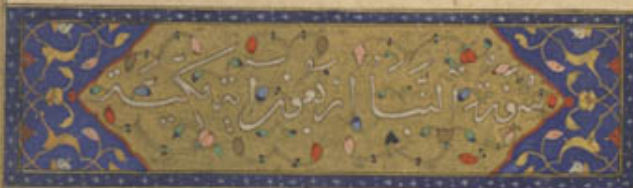 سورة النبأ أربعون آية مكية